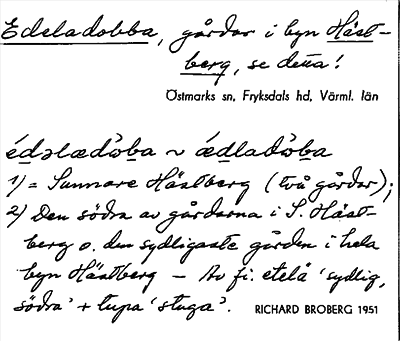 Edeladobba, gårdar i byn Häst-
berg, se detta!
Östmarks sn, Fryksdals hd, Värml. län
édəlædòba ~ ǽdladòba
1) = Sunnare Hästberg (två gårdar);
2) Den södra av gårdarna i S. Häst-
berg o. den sydligaste gården i hela
byn Hästberg – Av fi. etelä 'sydlig,
södra' + tupa 'stuga'.
RICHARD BROBERG 1951